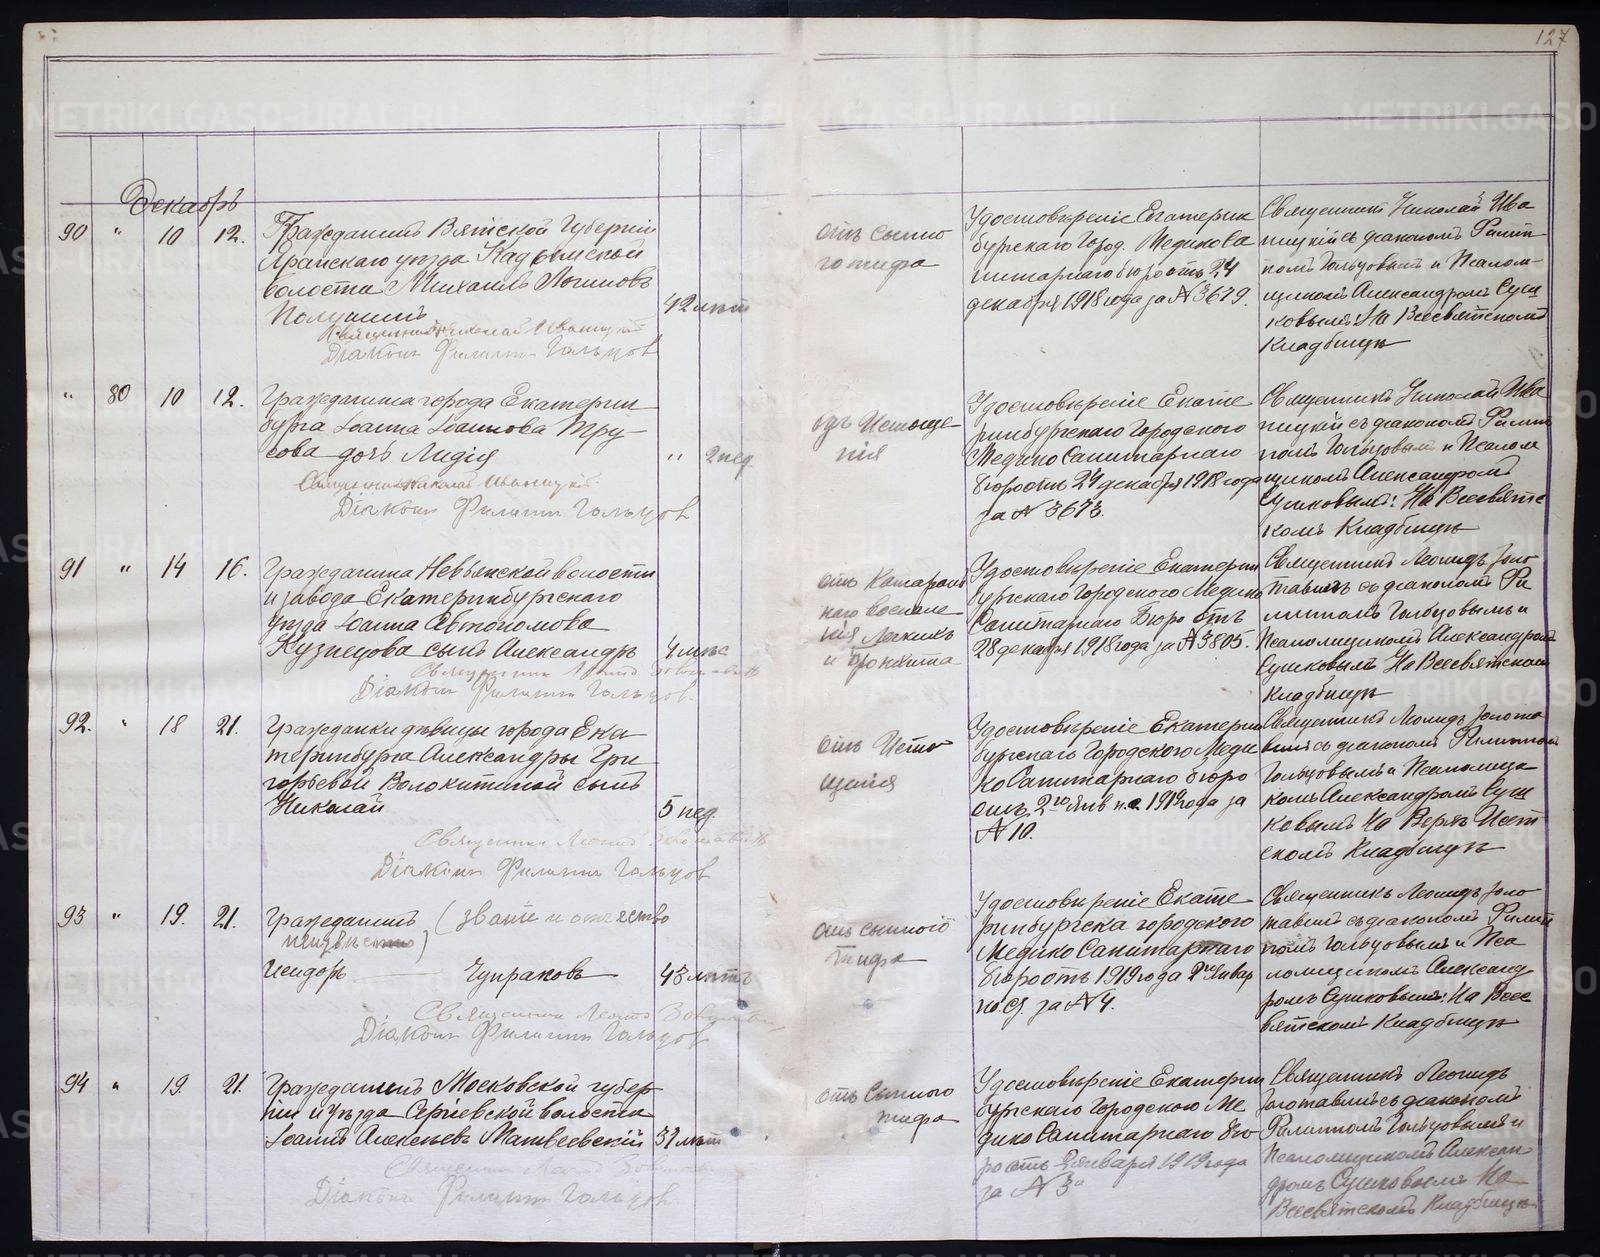 127
Декабрь
90 " 10 12. Гражданинъ Вятской Губерніи
Яранскаго уѣзда Кадымской
волости Михаилъ Логиновъ
Полушинъ 42 лѣтъ
Священникъ Николай Иваницкій
Діаконъ Филиппъ Гальцовъ
отъ сыпно
го тифа
Удостовѣреніе Екатерин
бургскаго Город. Медикоса
нитарнаго бюро отъ 24
декабря 1918 года за № 3679.
Священникъ Николай Ива
ницкій съ діакономъ Филип
помъ Гальцовымъ и Псалом
щикомъ Александромъ Суш
ковымъ: На Всесвятскомъ
Кладбищѣ
" 80 10 12. Гражданина города Екатерин
бурга Іоанна Іоаннова Тру
сова дочь Лидія " 2 нед.
Священникъ Николай Иваницкій
Діаконъ Филиппъ Гальцовъ
отъ Истоще
нія
Удостовѣреніе Екате
ринбургскаго Городского
Медико Санитарнаго
бюро отъ 24 декабря 1918 года
за № 3673.
Священникъ Николай Ива
ницкій съ діакономъ Филип
помъ Гальцовымъ и Псалом
щикомъ Александромъ
Сушковымъ: На Всесвятс
комъ Кладбищѣ
91 " 14 16. Гражданина Невьянской волости
и завода Екатеринбургскаго
уѣзда Іоанна Автономова
Кузнецова сынъ Александръ 4 мѣс
Священникъ Леонид Золотавинъ
Діаконъ Филиппъ Гальцовъ.
отъ Катараль
наго воспале
нія Легкихъ
и бронхита
Удостовѣреніе Екатерин
бургскаго Городского Медико
Санитарнаго Бюро отъ
28 декабря 1918 года за № 3805.
Священникъ Леонидъ Золо
тавинъ съ діакономъ Фи
липпомъ Гальцовымъ и
Псаломщикомъ Александромъ
Сушковымъ На Всесвятскомъ
Кладбищѣ
92. " 18 21. Гражданки дѣвицы города Ека
теринбурга Александры Гри
горьевой Волокитиной сынъ
Николай 5 нед.
Священникъ Леонид Золотавинъ
Діаконъ Филиппъ Гальцовъ
отъ Исто
щенія
Удостовѣреніе Екатерин
бургскаго Городского Меди
ко Санитарнаго бюро
отъ 2го Янв н.с. 1919 года за
№ 10.
Священникъ Леонидъ Золота
винъ съ діакономъ Филиппомъ
Гальцовымъ и Псаломщи
комъ Александромъ Суш
ковымъ На Верхъ Исет
скомъ Кладбищѣ
93 " 19. 21. Гражданинъ (званіе и отчество
неизвѣстно)
Исидоръ Чупраковъ 43 лѣтъ
Священникъ Леонид Золотавинъ
Діаконъ Филиппъ Гальцовъ
отъ сыпного
тифа
Удостовѣреніе Екате
ринбургска городского
Медико Санитарнаго
бюро отъ 1919 года 2го Январ
за № 4.
Священникъ Леонидъ Золо
тавинъ съ діакономъ Филип
помъ Гальцовымъ и Пса
ломщикомъ Александ
ромъ Сушковымъ: На Всес
вятскомъ Кладбищѣ
94 " 19. 21. Гражданинъ Московской губер
ніи и уѣзда Сергіевской волости
Іоаннъ Алексѣевъ Матвеевскій 37 лѣт
Священникъ Леонид Золотавинъ
Діаконъ Филиппъ Гальцовъ
отъ Сыпного
тифа
Удостовѣреніе Екатерин
бургскаго Городского Ме
дико Санитарнаго бю
ро отъ 2 января 1919 года
за № 3
Священникъ Леонидъ
Золотавинъ съ діакономъ
Филиппомъ Гальцовымъ и
Псаломщикомъ Алексан
дромъ Сушковымъ На
Всесвятскомъ Кладбищѣ
METRIKI.GASO-URAL.RU